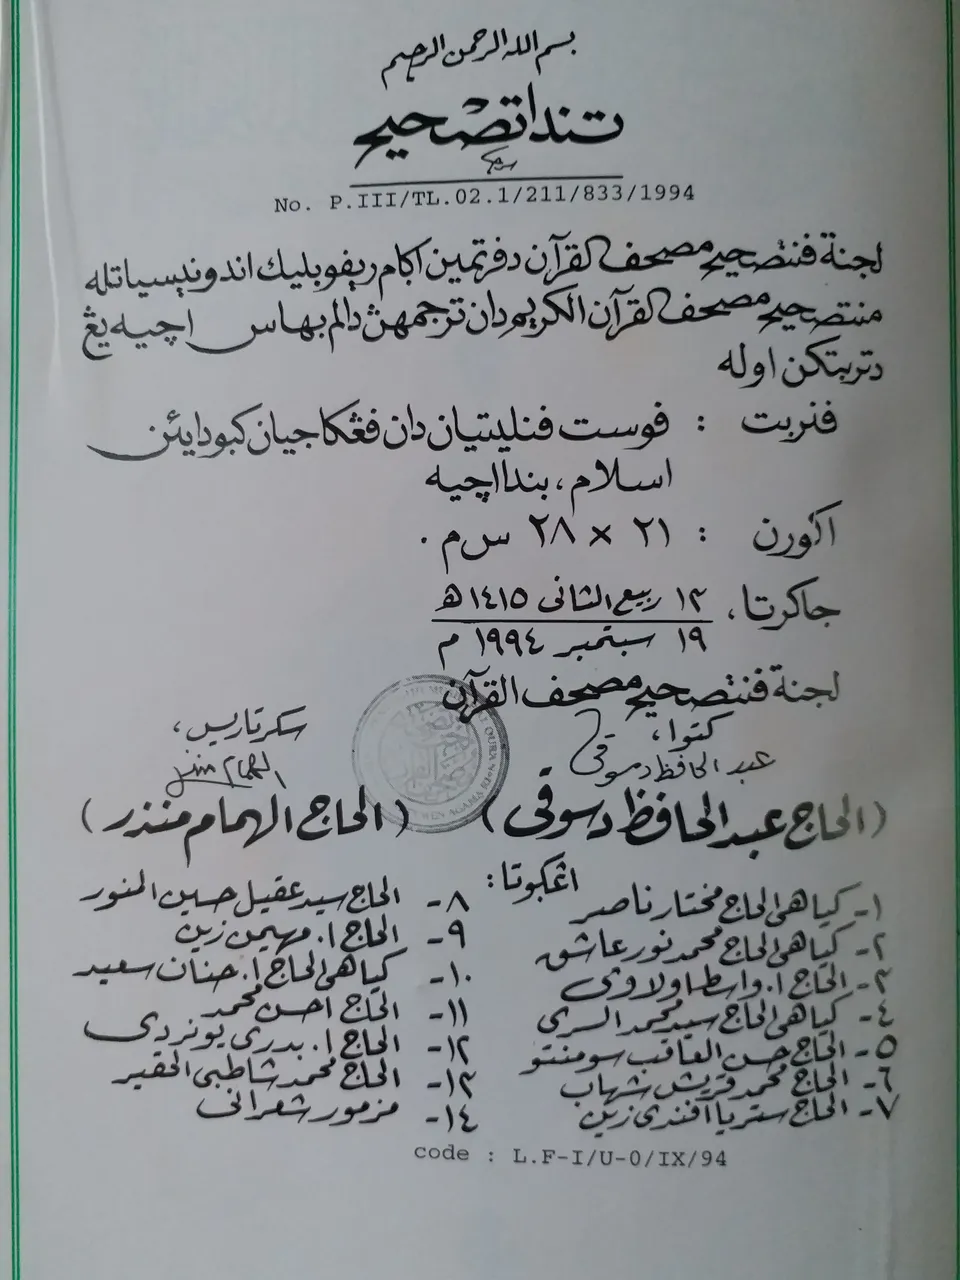 بسم الله الرحمن الرحيم
تندا تصحيح
No. P.III/TL.02.1/211/833/1994
لجنة فنتصحيح مصحف القرآن دفرتمين اݢام ريڤوبليك اندونيسيا تله
منتصحيح مصحف القرآن الكريم دان ترجمهن دالم بهاس اچيه يڠ
دتربتكن اوله
فنربت : فوست فنليتيان دان فڠكاجيان كبودايئن
اسلام، بندا اچيه
اكورن : ٢١ × ٢٨ س م.
جاكرتا، ١٣ ربيع الثانى ١٤١٥ ھ
١٩ سبتمبر ١٩٩٤ م
لجنة فنتصحيح مصحف القرآن
كتوا، سكرتاريس،
عبد الحافظ دسوقى
(الحاج عبد الحافظ دسوقى) (الحاج الهمام منذر)
اڠكوتا:
١- كياهى الحاج مختار ناصر
٢- كياهى الحاج محمد نور عاشق
٣- الحاج ا. واسطا ولاوى
٤- كياهى الحاج سيد محمد السرى
٥- الحاج حسن العاقب سومنتو
٦- الحاج محمد قريش شهاب
٧- الحاج ستريا افندى زين
٨- الحاج سيد عقيل حسين المنور
٩- الحاج ا. مهيمن زين
١٠- كياهى الحاج ا. حنان سعيد
١١- الحاج احسن محمد
١٢- الحاج ا. بدرى يونردى
١٣- الحاج محمد شاطبى الحقير
١٤- مزمور شعرانى
code : L.F-I/U-0/IX/94